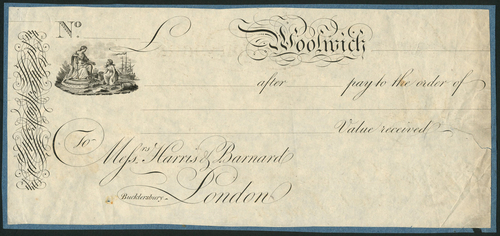 Nº £ Woolwich
after pay to the order of
Value received
To Messrs Harris & Barnard
Bucklersbury London